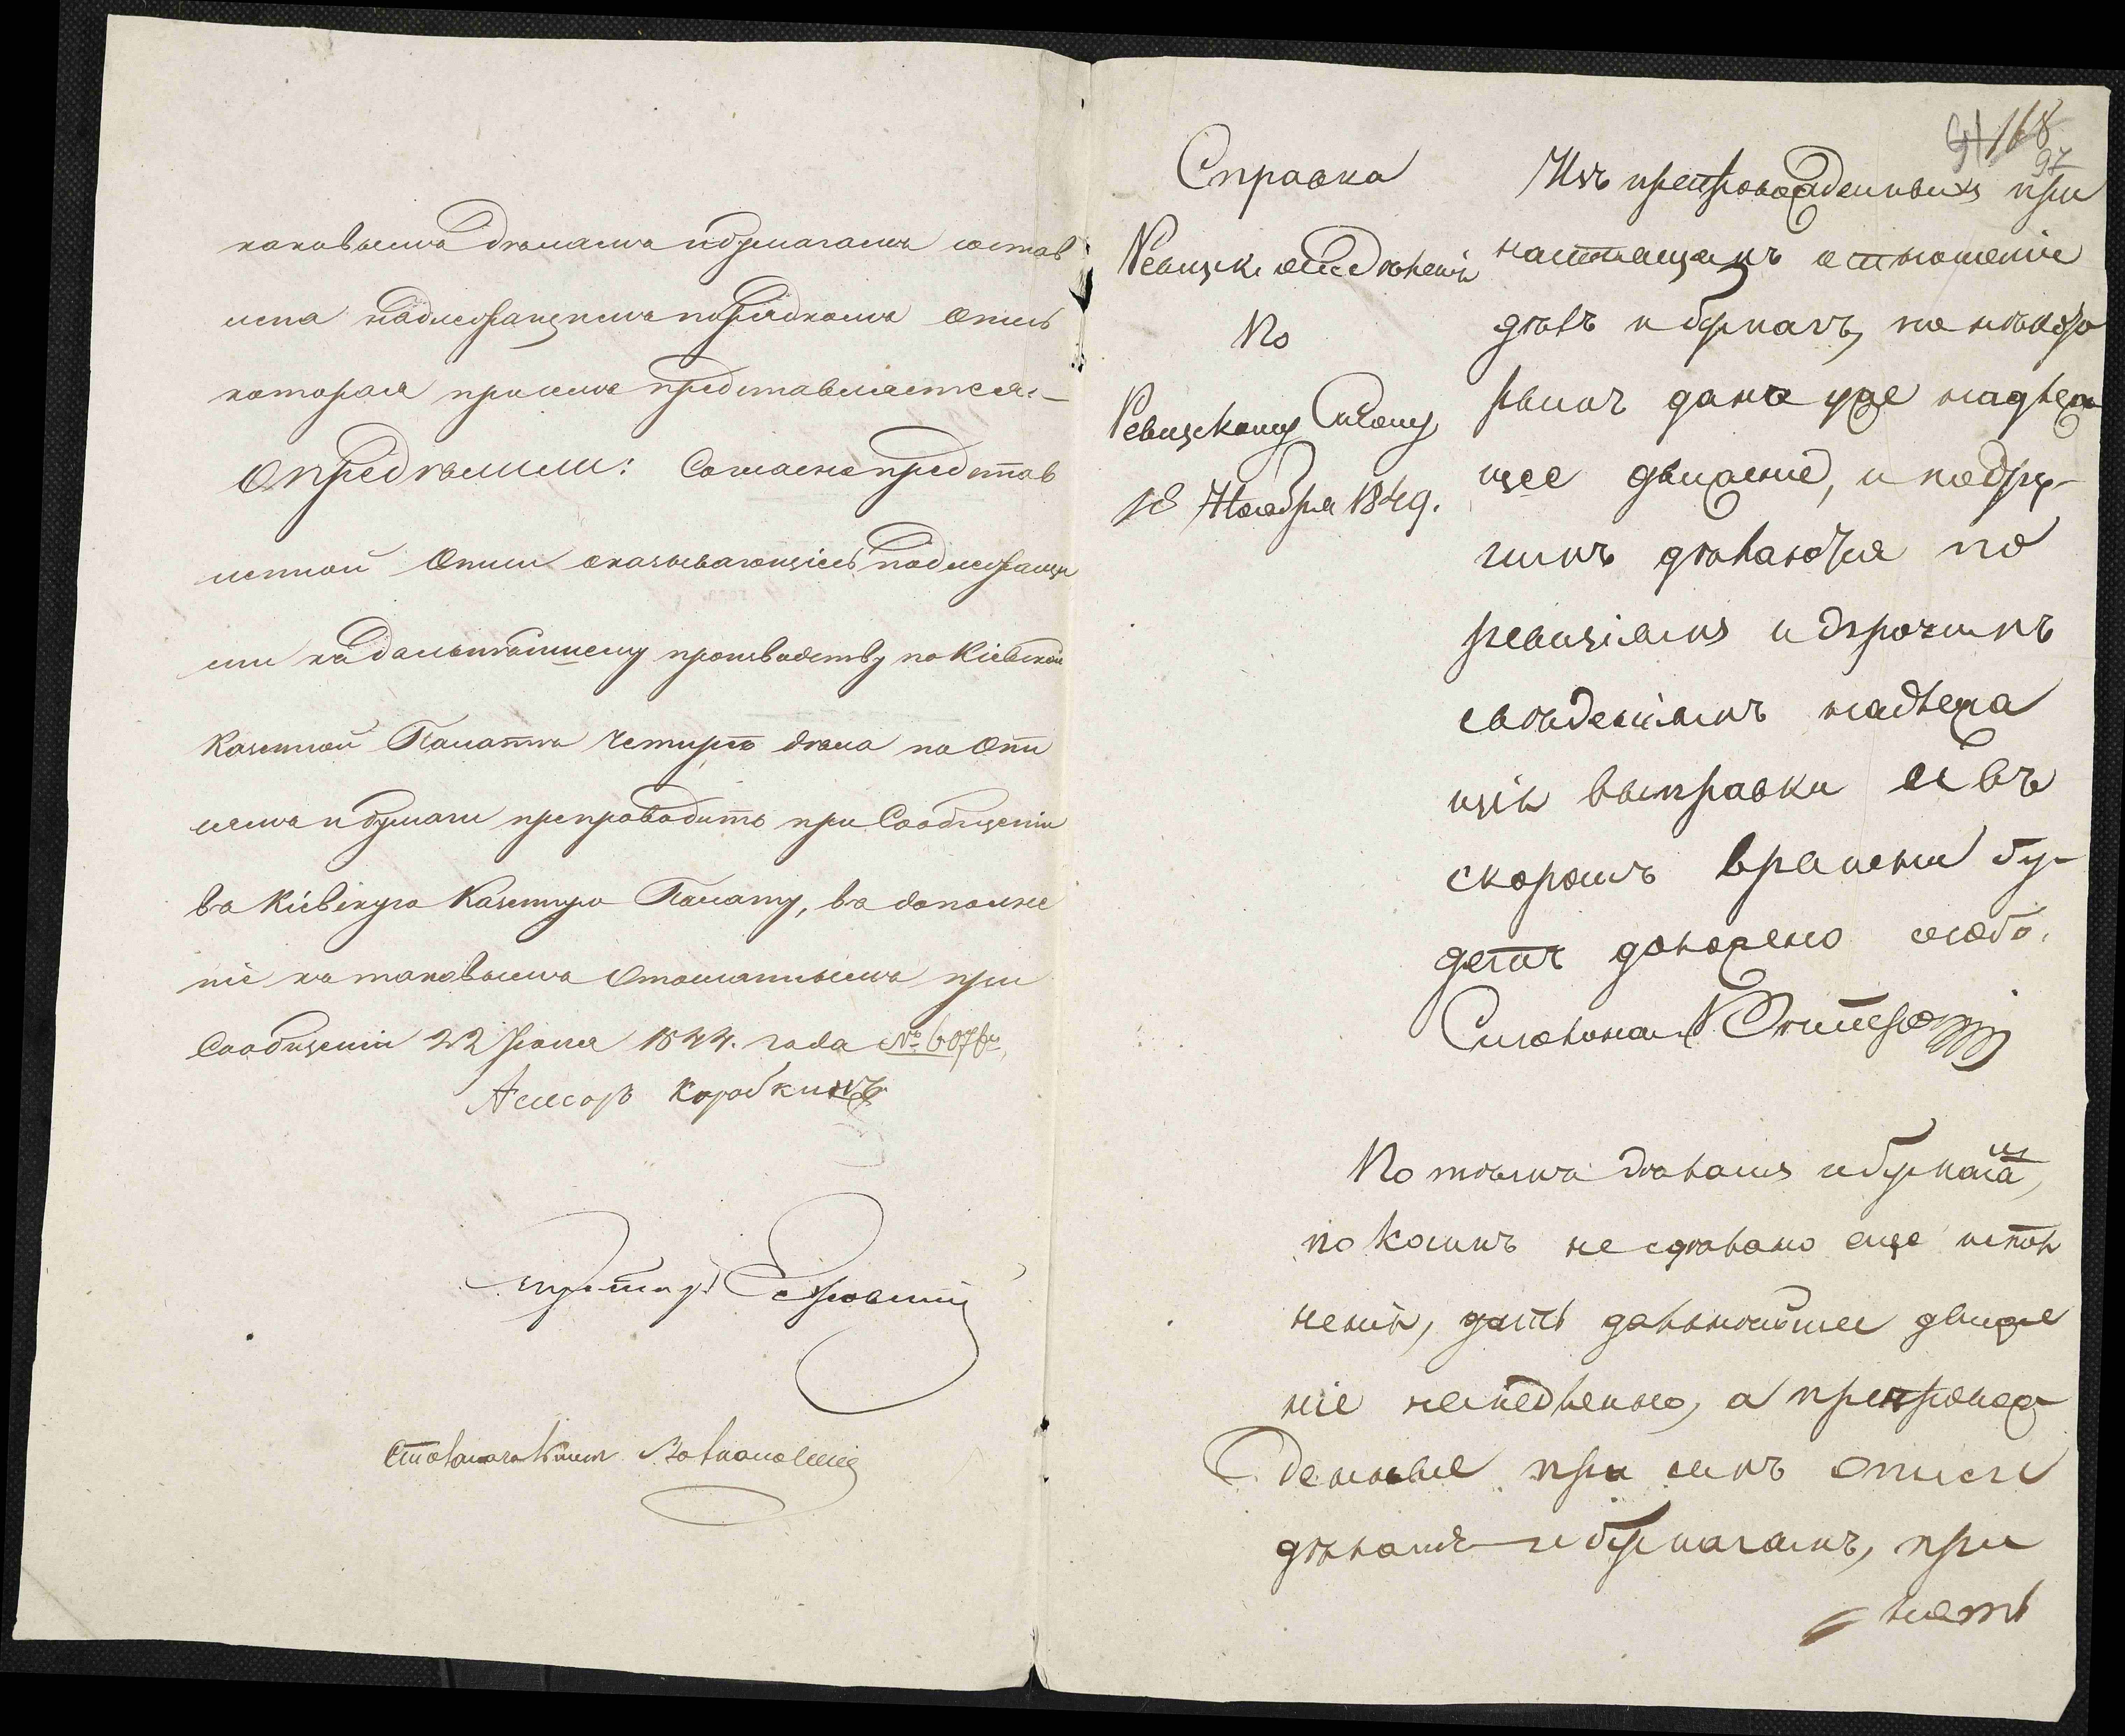 каковымъ дѣламъ и бумагамъ состав
лена надлежащимъ порядкомъ Опись
которая при семъ представляется.—
Опредѣлили: Согласно представ
ленной Описи оказывающіеся подлежащи
ми къ дальнѣйшему производству по Кіевской
Казенной Палатѣ четыре дѣла по Опи
самъ и бумаги препроводить при Сообщеніи
въ Кіевскую Казенную Палату, въ дополне
ніе къ таковымъ Отосланнымъ при
Сообщеніи 22 Іюня 1844. года № 6076,
Асессоръ Коробкинъ
Столоначальникъ
91 168
97
Справка
Ревизск. отдѣленія
По
Ревизскому Столу
18 Ноября 1849.
Изъ препровожденныхъ при
настоящемъ отношеніи
дѣлъ и бумагъ, по нѣкото
рымъ дано уже надлежа
щее движеніе, и по дру-
гимъ дѣлаются по
ревизіямъ и прочимъ
свѣденіямъ надлежа
щія выправки и въ
скоромъ времени бу-
детъ доложено особо.
Столонач.
По тѣмъ дѣламъ и бумагамъ,
по коимъ не сдѣлано еще испол
ненія, дать дальнѣйшее движе
ніе немедленно, а препровож
денные при семъ описи
дѣламъ и бумагамъ, при
нять